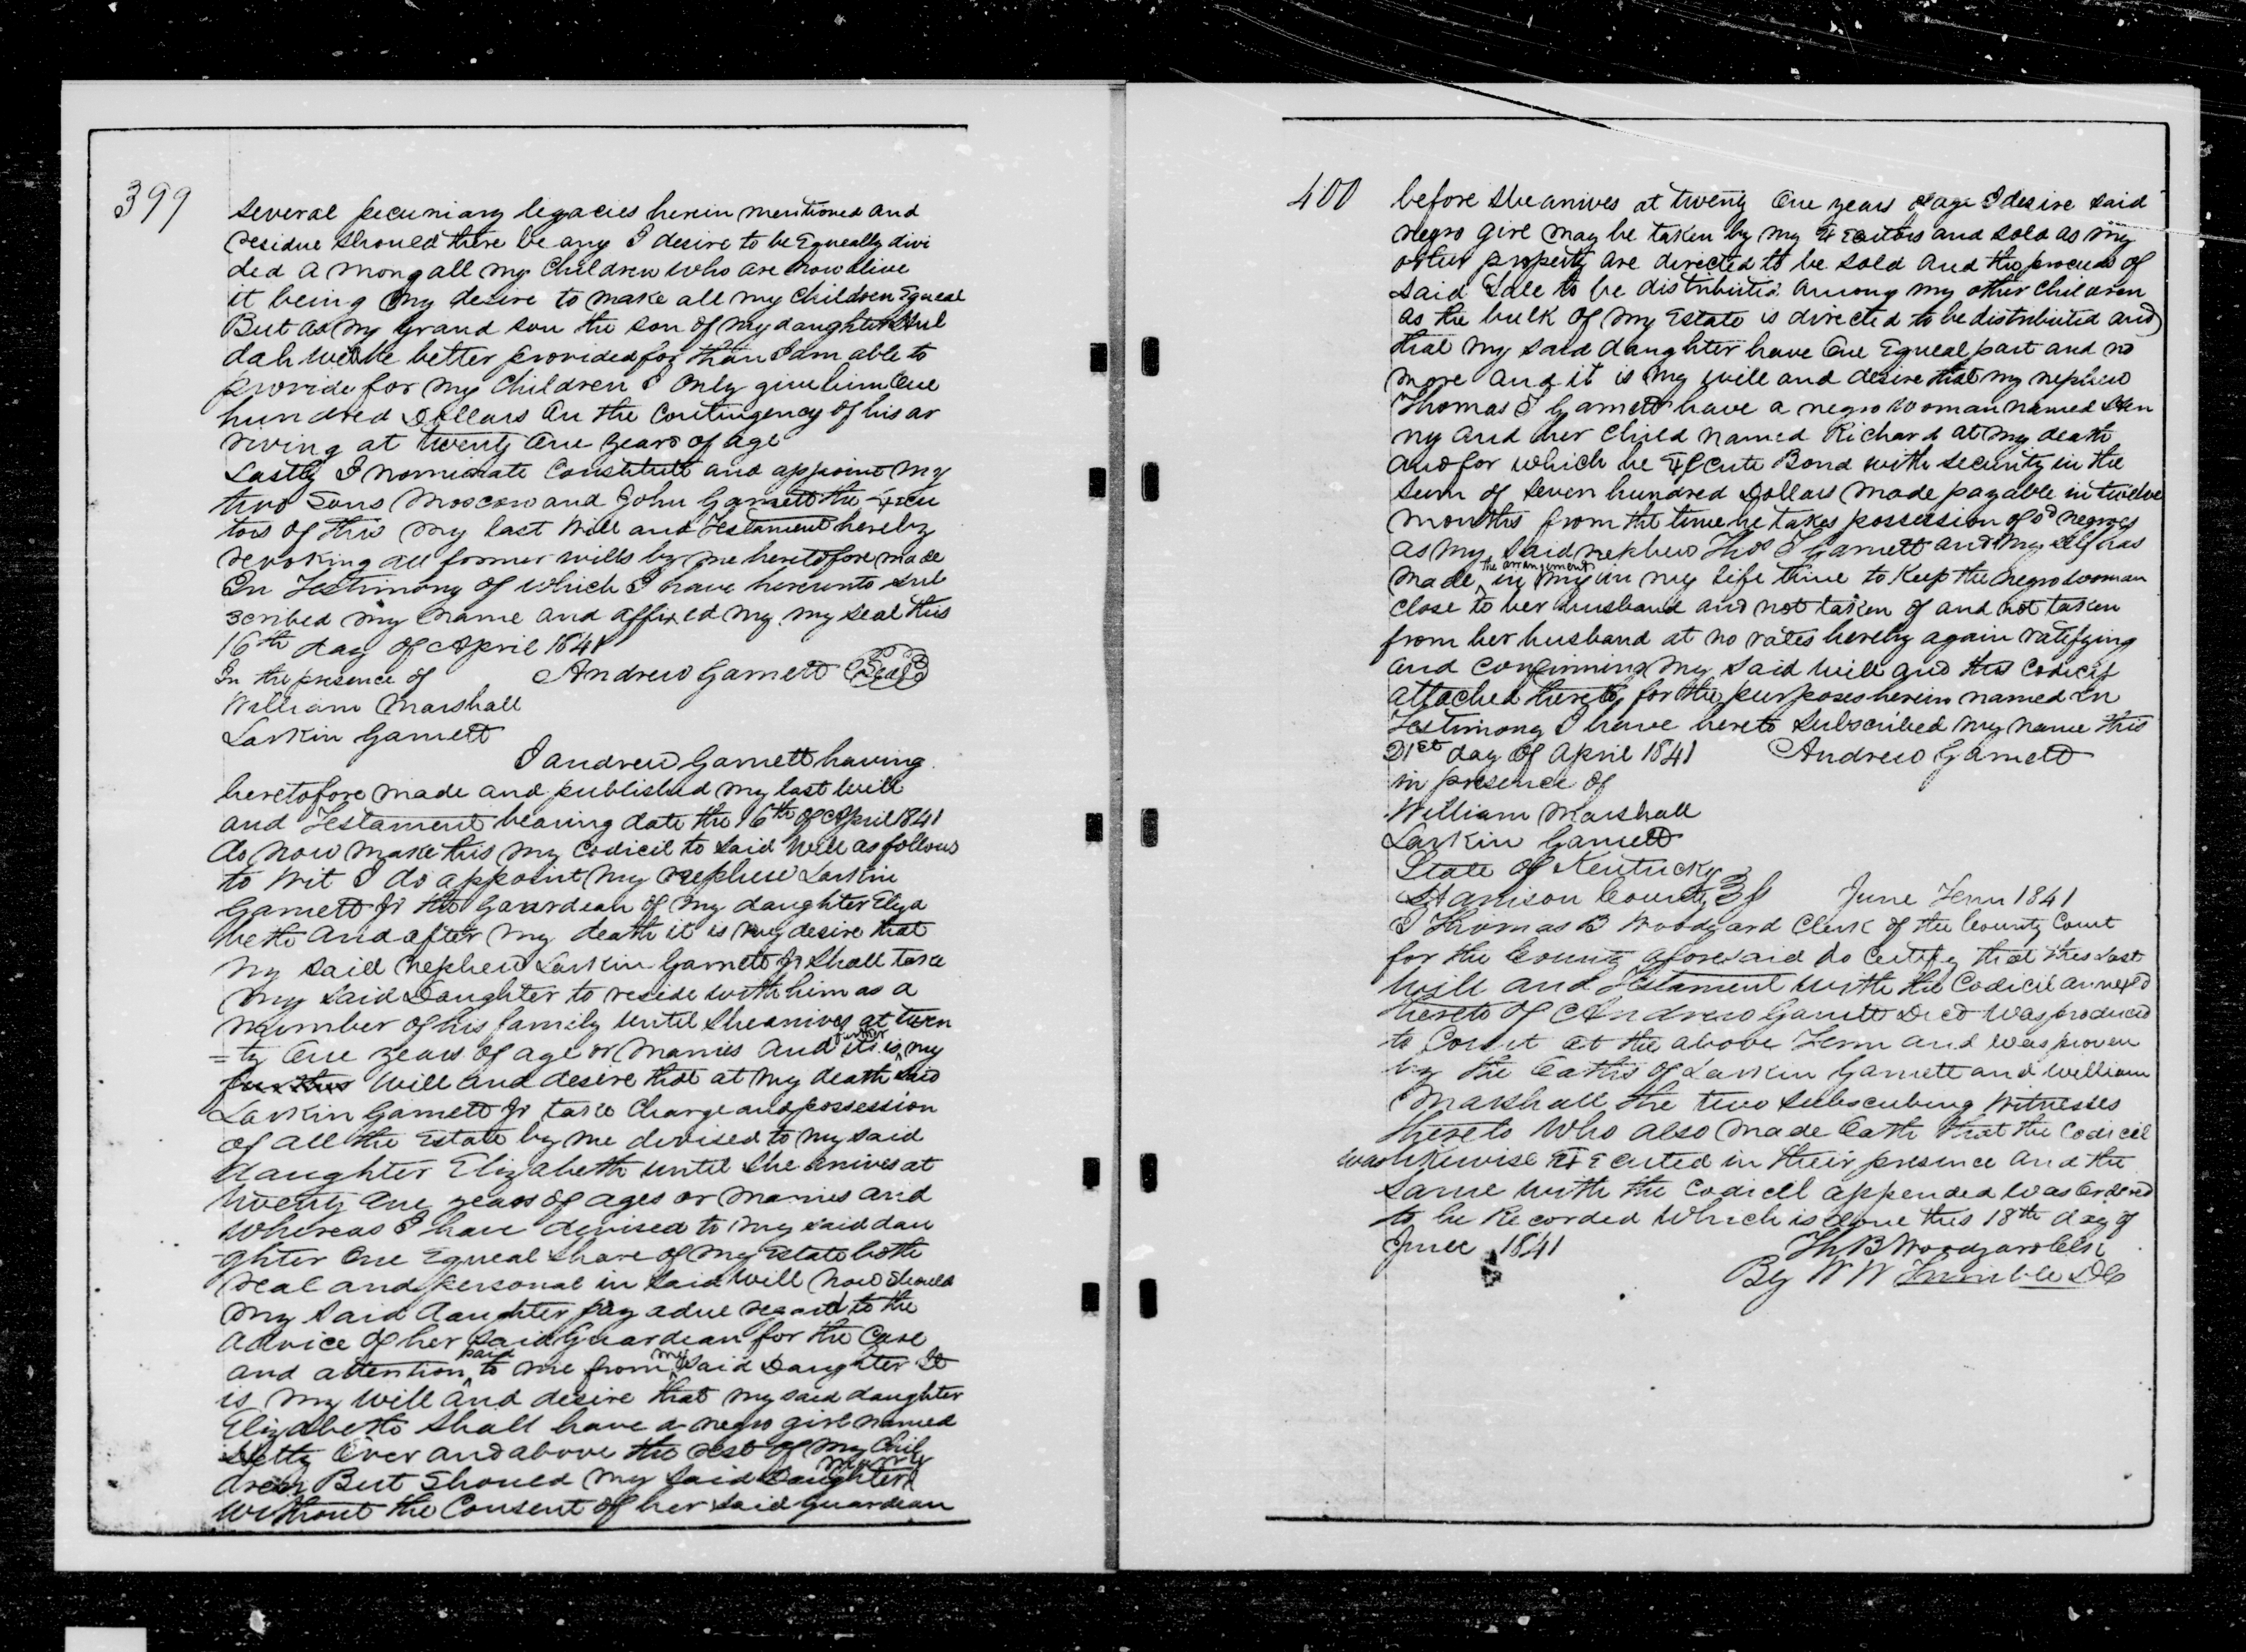 399
several pecuniary legacies herein mentioned and
residue should there be any I desire to be Equeally divi
ded a mong all my Children who are now alive
it being my desire to make all my Children Equeal
But as my grand son the son of my daughter Hul
dah will be better provided for than I am able to
provide for my Children I only give him One
hundred Dollars on the Contingency of his ar
riving at twenty One years of age
Lastly I nominate Constitute and appoint my
two Sons Moscow and John Garnett the Execu
tors of this my last Will and Testament hereby
revoking all former wills by me heretofore made
In Testimony of which I have hereunto sub
scribed my name and affixed my my seal this
16th day of April 1841
In the presence of Andrew Garnett Seal
William Marshall
Larkin Garnett
I Andrew Garnett having
heretofore made and published my last Will
and Testament bearing date the 16th of April 1841
do now make this my Codicil to said Will as follows
to wit I do appoint my nephew Larkin
Garnett Jr the Gaurdean of my daughter Eliza
beth and after my death it is my desire that
my said nephew Larkin Garnett Jr shall take
my said Daughter to reside with him as a
member of his family until she arives at twen
=ty One years of age or Marries and its is further my
further will and desire that at my death said
Larkin Garnett Jr take Charge and possession
of all the Estate by me devised to my said
daughter Elizabeth until she arives at
twenty One years of ages or marries and
whereas I have devised to my said dau
-ghter One Equeal share of my Estate both
real and personal in said will now should
my said daughter pay a due regard to the
advice of her said Guardean for the Care
and attention paid to me from my said Daughter It
is my will and desire that my said daughter
Elizabeth shall have a negro girl named
Hetty Over and above the rest of my Chil
dren But should my said Daughter marry
without the Consent of her said guardean
400
before she arives at twenty One years of age I desire said
negro girl may be taken by my Executors and sold as my
other property are directed to be sold and the proceeds of
said Sale to be distributed among my other Children
as the bulk of my Estate is directed to be distributed and
that my said daughter have One Equeal part and no
more And it is my will and desire that my nephew
Thomas J Garnett have a negro woman named Hen
ny and her Child named Richard at my death
and for which he Execute Bond with security in the
sum of seven hundred Dollars made payable in twelve
months from the time he takes possession of sd negroes
as my said nephew Thos J Garnett and my self has
made the arrangement in my in my life time to Keep the negro woman
close to her husband and not taken of and not taken
from her husband at no rates hereby again ratifying
and confirming my said will and this Codicil
attached thereto for the purposes herein named In
Testimony I have hereto subscribed my name this
21st day of April 1841 Andrew Garnett
in presence of
William Marshall
Larkin Garnett
State of Kentucky
Harrison County June Term 1841
I Thomas B Woodyard Clerk of the County Court
for the County aforesaid do Certify that this Last
Will and Testament with the Codicil annexed
thereto of Andrew Garnett Decd was produced
to Court at the above Term and was proven
by the Oaths of Larkin Garnett and William
Marshall the two subscribing Witnesses
thereto Who also made Oath that the Codicil
was likewise Executed in their presence and the
same with the Codicil appended was Ordered
to be Recorded Which is done this 18th day of
June 1841 Th B Woodyard Clk
By W W Trimble DC